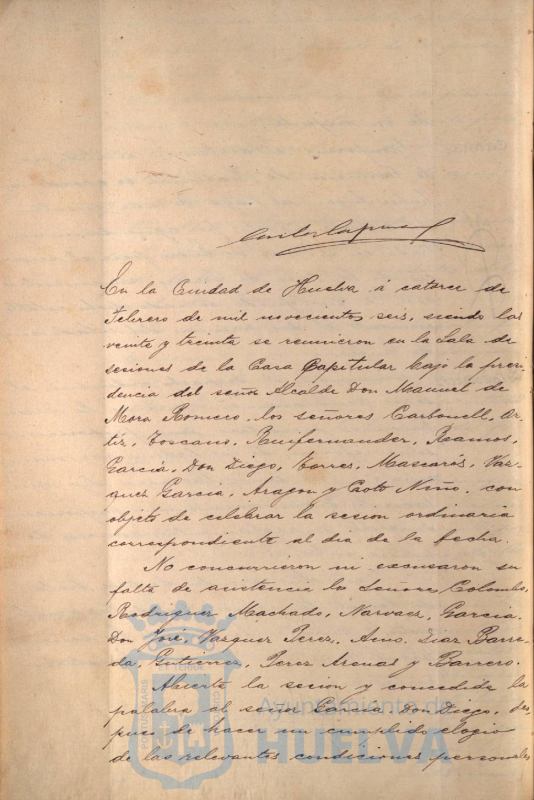 En la Ciudad de Huelva á catorce de
Febrero de mil novecientos seis, siendo las
veinte y treinta se reunieron en la Sala de
sesiones de la Casa Capitular bajo la presi
dencia del señor Alcalde Don Manuel de
Mora Romero, los señores Carbonell, Or-
tiz, Toscano, Ruifernandez, Ramos,
García, Don Diego, Torres, Mascarós, Vaz-
quez Garcia, Aragon y Coto Niño, con
objeto de celebrar la sesion ordinaria
correspondiente al dia de la fecha.
No concurrieron ni excusaron su
falta de asistencia los Señores Colombo,
Rodriguez Machado, Narvaez, Garcia,
Don José, Vazquez Perez, Diaz Barre-
da, Gutierrez, Perez Arenas y Barrero.
Abierta la sesion y concedida la
palabra al señor Garcia Don Diego, des
pues de hacer un cumplido elogio
de las relevantes condiciones personales
Ayuntamiento de
HUELVA